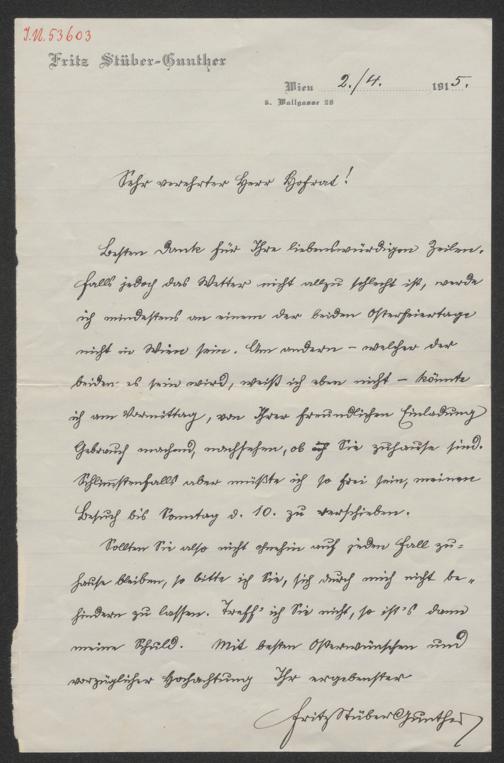 I.N. 53603
Fritz Stüber-Gunther
Wien 2./4. 1915.
6. Wallgasse 28
Sehr verehrter Herr Hofrat!
Besten Dank für Ihre liebenswürdigen Zeilen.
Falls jedoch das Wetter nicht allzu schlecht ist, werde
ich mindestens an einem der beiden Osterfeiertage
nicht in Wien sein. Am andern – welcher der
beiden es sein wird, weiß ich eben nicht – könnte
ich am Vormittag, von Ihrer freundlichen Einladung
Gebrauch machend, nachsehen, ob Sie zuhause sind.
Schlimmstenfalls aber müßte ich so frei sein, meinen
Besuch bis Sonntag d. 10. zu verschieben.
Sollten Sie also nicht ohnehin auf jeden Fall zu=
hause bleiben, so bitte ich Sie, sich durch mich nicht be=
hindern zu lassen. Treff' ich Sie nicht, so ist's dann
meine Schuld. Mit besten Osterwünschen und
vorzüglicher Hochachtung Ihr ergebenster
Fritz Stüber Gunther